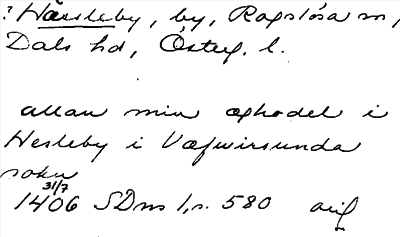 ? Hässleby, by, Rogslösa sn,
Dals hd, Österg. l.
allan min æghodel i
Hesleby i Væfwirsunda
sokn
31/7
1406 SDns 1, s. 580 avig